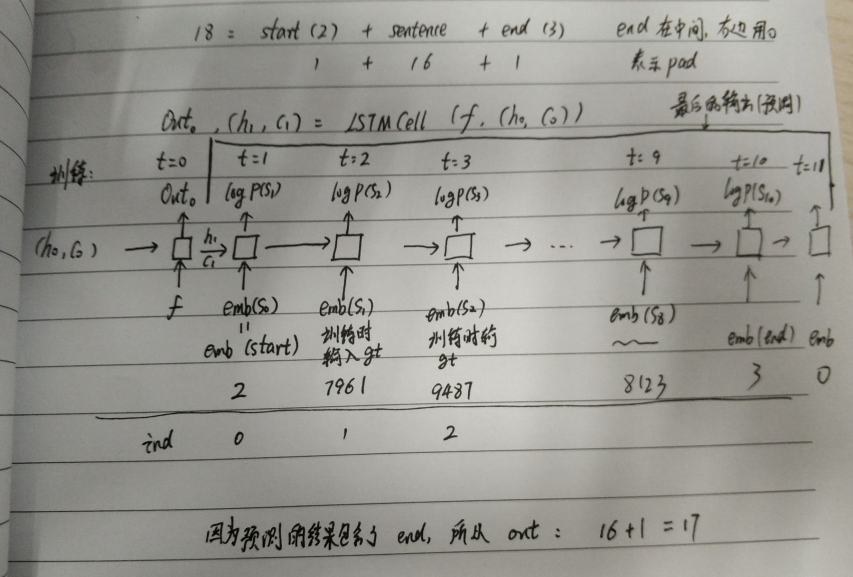 18 = start (2) + sentence + end (3) end 在中间, 右边用0
1 + 16 + 1 表示 pad
Out₀, (h₁, C₁) = LSTMCell (f, (h₀, C₀)) 最后的输出(预测)
训练: t=0 t=1 t=2 t=3 t=9 t=10 t=11
Out₀ logP(S₁) logP(S₂) logP(S₃) logP(S₉) logP(S₁₀)
(h₀, C₀) h₁ ...
C₁
f emb(S₀) emb(S₁) emb(S₂) emb(S₈)
emb (start) 训练时 训练时输 emb(end) emb
输入gt gt
2 7961 9487 8123 3 0
ind 0 1 2
因为预测的结果包含了 end, 所以 out : 16+1 = 17